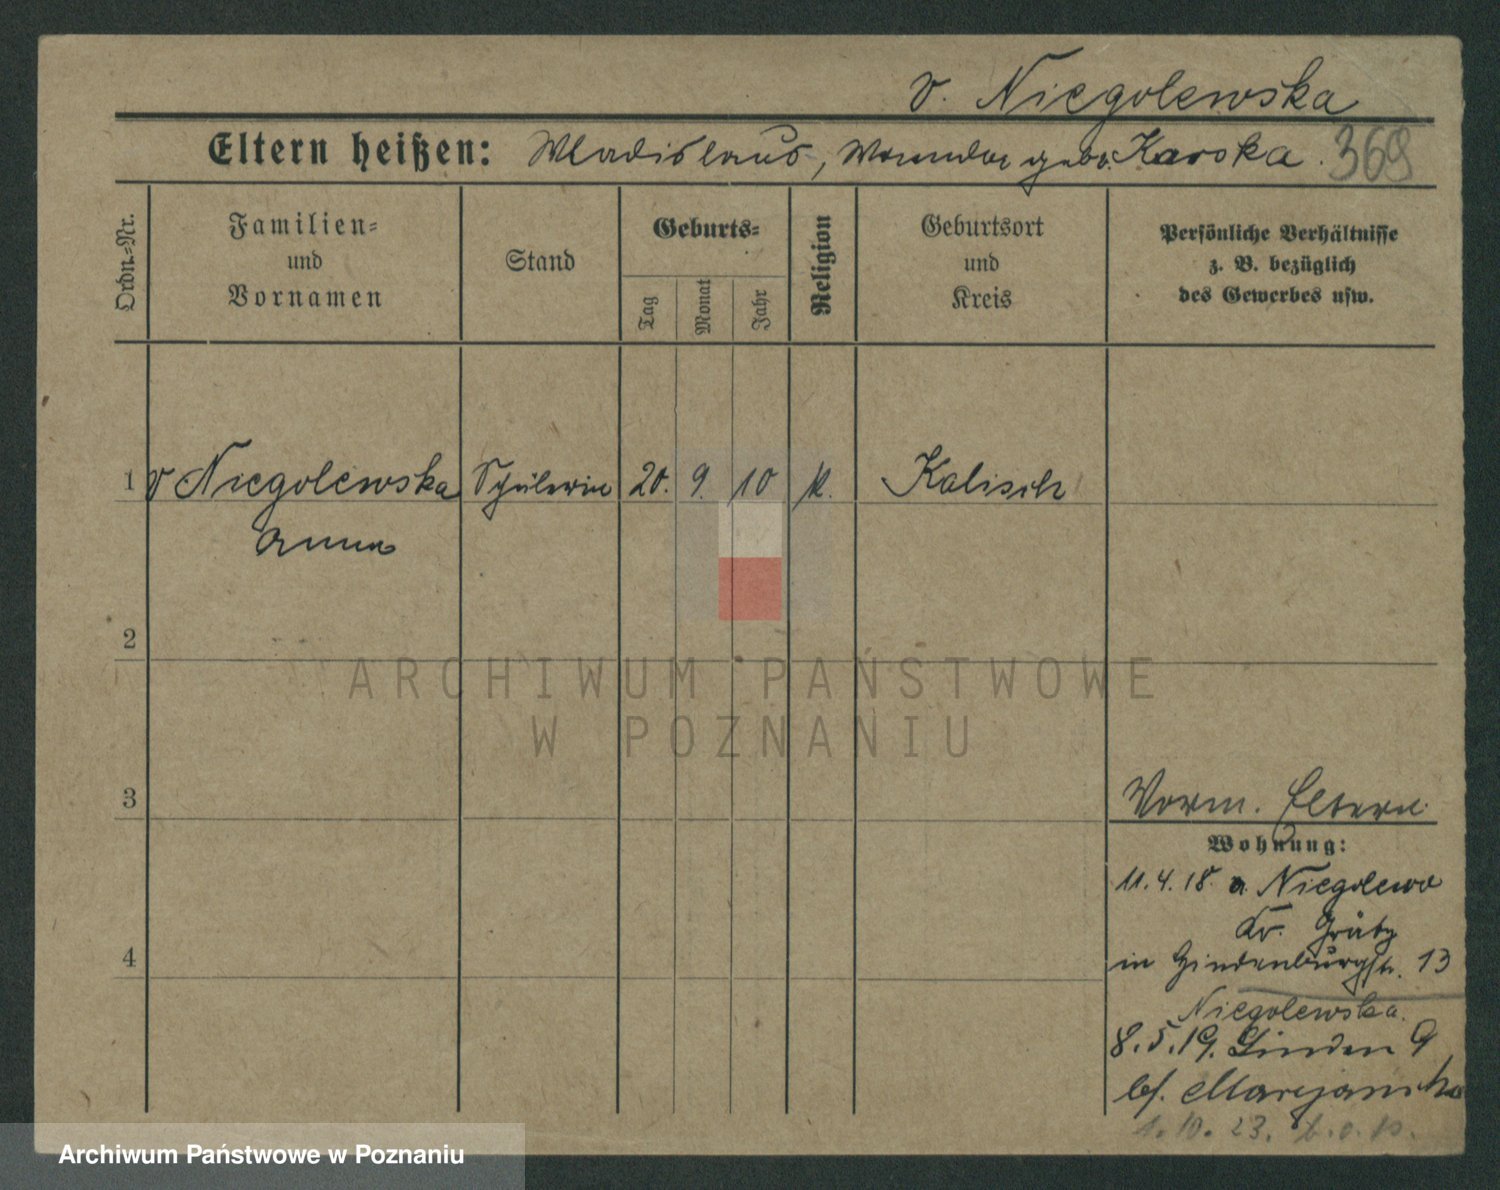 v. Niegolewska
Eltern heißen: Wladislaus, Wanda geb. Karska. 369
Ordn.-Nr.
Familien-
und
Vornamen
Stand
Geburts-
Tag
Monat
Jahr
Religion
Geburtsort
und
Kreis
Persönliche Verhältnisse
z. B. bezüglich
des Gewerbes usw.
1 v Niegolewska Schülerin 20. 9. 10 k. Kalisch
Anna
2
ARCHIWUM PAŃSTWOWE
W POZNANIU
3
Vorm. Eltern
Wohnung:
11.4.18. a Niegolewo
Kr. Grätz
4
in Hindenburgstr. 13
Niegolewska.
8.5.19. Linden 9
bf.
1.10.23.
Archiwum Państwowe w Poznaniu